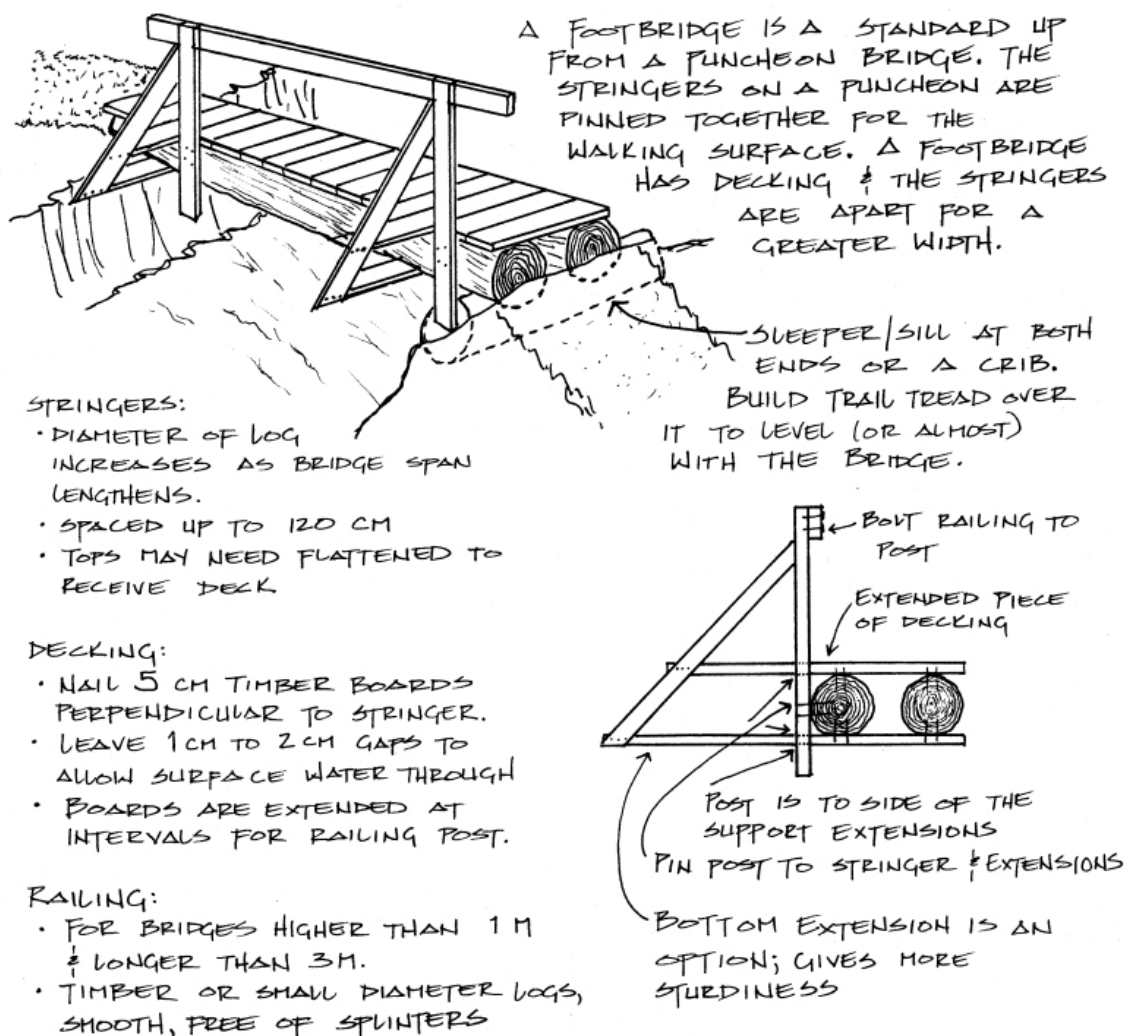 A FOOTBRIDGE IS A STANDARD UP
FROM A PUNCHEON BRIDGE. THE
STRINGERS ON A PUNCHEON ARE
PINNED TOGETHER FOR THE
WALKING SURFACE. A FOOTBRIDGE
HAS DECKING & THE STRINGERS
ARE APART FOR A
GREATER WIDTH.
SLEEPER/SILL AT BOTH
ENDS OR A CRIB.
BUILD TRAIL TREAD OVER
IT TO LEVEL (OR ALMOST)
WITH THE BRIDGE.
STRINGERS:
• DIAMETER OF LOG
INCREASES AS BRIDGE SPAN
LENGTHENS.
• SPACED UP TO 120 CM
• TOPS MAY NEED FLATTENED TO
RECEIVE DECK
DECKING:
• NAIL 5 CM TIMBER BOARDS
PERPENDICULAR TO STRINGER.
• LEAVE 1 CM TO 2 CM GAPS TO
ALLOW SURFACE WATER THROUGH
• BOARDS ARE EXTENDED AT
INTERVALS FOR RAILING POST.
RAILING:
• FOR BRIDGES HIGHER THAN 1 M
& LONGER THAN 3M.
• TIMBER OR SMALL DIAMETER LOGS,
SMOOTH, FREE OF SPLINTERS
BOLT RAILING TO
POST
EXTENDED PIECE
OF DECKING
POST IS TO SIDE OF THE
SUPPORT EXTENSIONS
PIN POST TO STRINGER & EXTENSIONS
BOTTOM EXTENSION IS AN
OPTION; GIVES MORE
STURDINESS